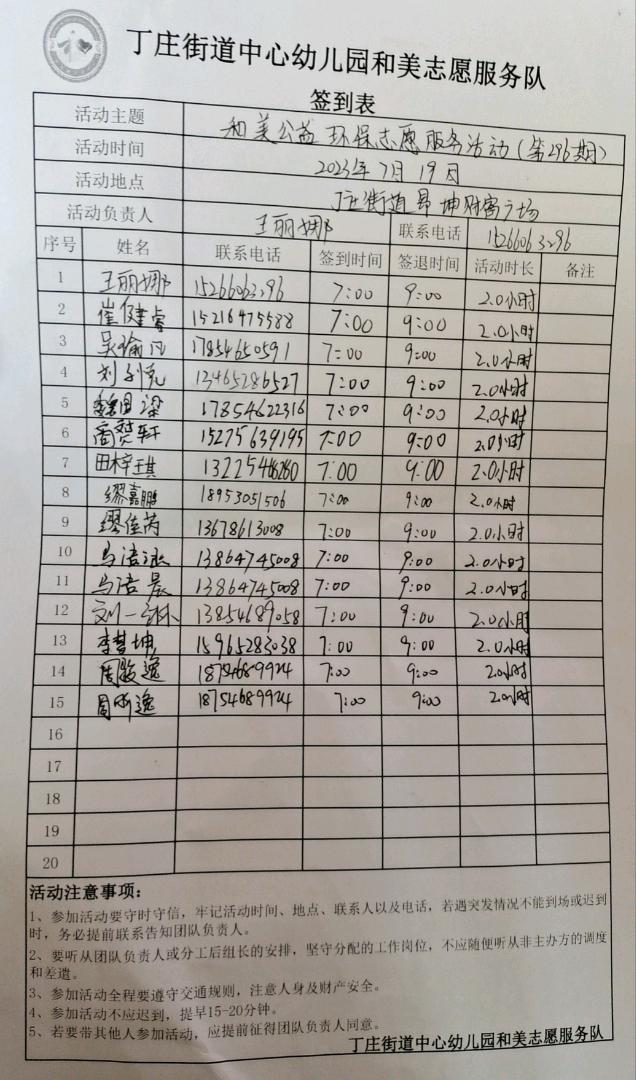 丁庄街道中心幼儿园和美志愿服务队
签到表
活动主题 和美公益环保志愿服务活动(第296期)
活动时间 2023年7月19日
活动地点 丁庄街道昂坤财富广场
活动负责人 王丽娜 联系电话 15266063296
序号 姓名 联系电话 签到时间 签退时间 活动时长 备注
1 王丽娜 15266063296 7:00 9:00 2.0小时
2 崔健睿 15216475588 7:00 9:00 2.0小时
3 17854650591 7:00 9:00 2.0小时
4 13465286527 7:00 9:00 2.0小时
5 17854622316 7:00 9:00 2.0小时
6 15275639195 7:00 9:00 2.0小时
7 田梓琪 7:00 9:00 2.0小时
8 缪嘉鹏 18953051506 7:00 9:00 2.0小时
9 缪佳芮 13678613008 7:00 9:00 2.0小时
10 马浩涵 13864745008 7:00 9:00 2.0小时
11 马浩晨 13864745008 7:00 9:00 2.0小时
12 刘一霖 13854689058 7:00 9:00 2.0小时
13 李慧坤 15965283038 7:00 9:00 2.0小时
14 周骏逸 18754689924 7:00 9:00 2.0小时
15 周昕逸 18754689924 7:00 9:00 2.0小时
16
17
18
19
20
活动注意事项:
1、参加活动要守时守信,牢记活动时间、地点、联系人以及电话,若遇突发情况不能到场或迟到
时,务必提前联系告知团队负责人。
2、要听从团队负责人或分工后组长的安排,坚守分配的工作岗位,不应随便听从非主办方的调度
和差遣。
3、参加活动全程要遵守交通规则,注意人身及财产安全。
4、参加活动不应迟到,提早15-20分钟。
5、若要带其他人参加活动,应提前征得团队负责人同意。
丁庄街道中心幼儿园和美志愿服务队